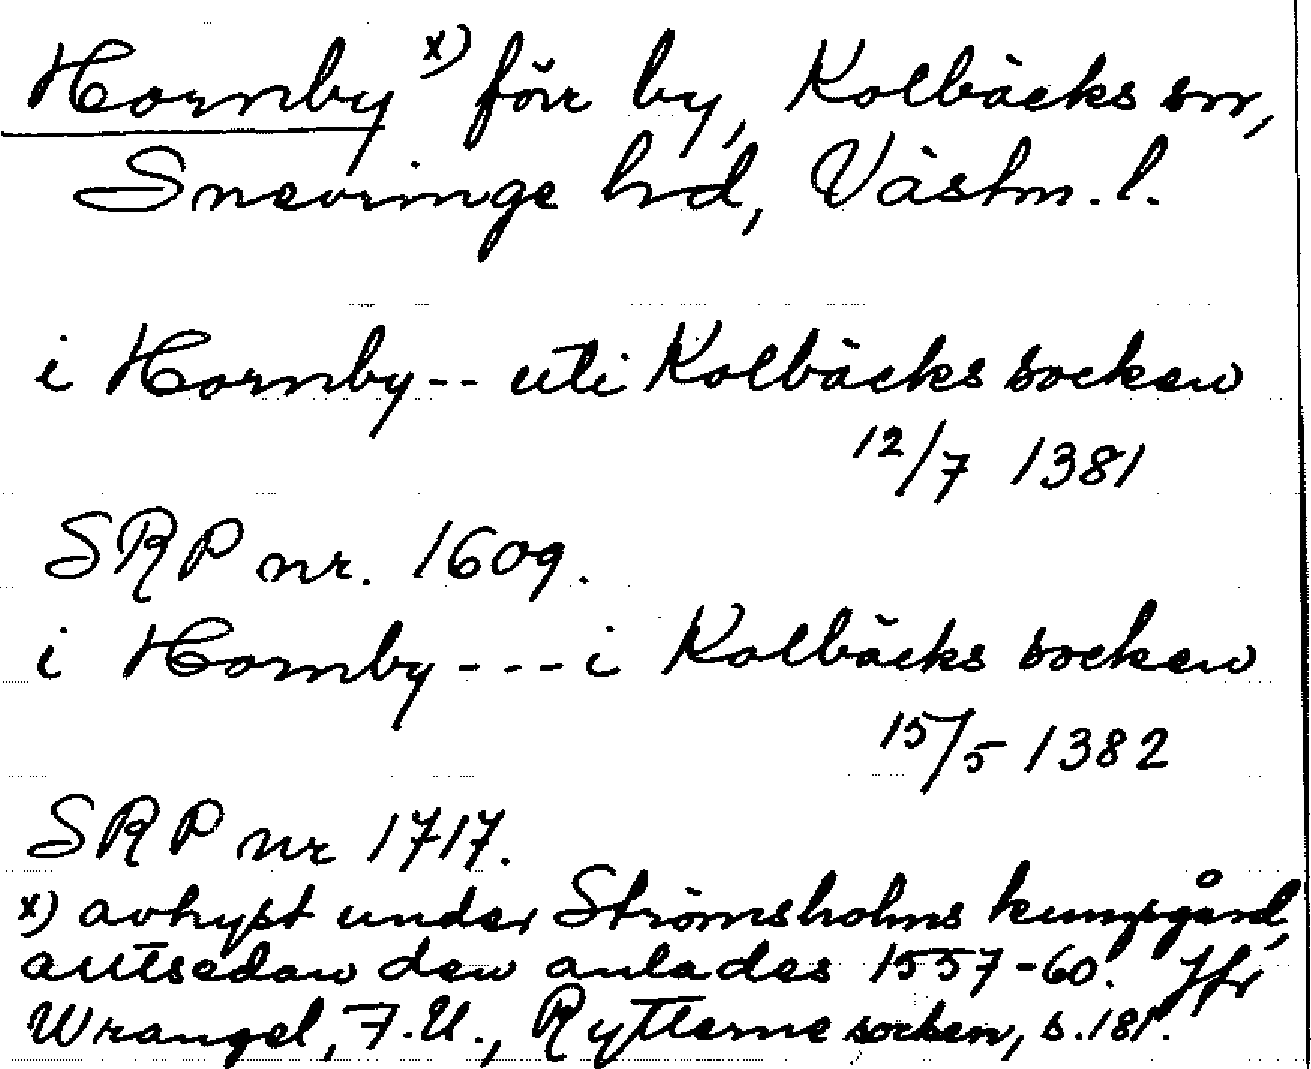 Hornby x) förr by, Kolbäcks sn,
Snevringe hd, Västm. l.
i Hornby -- uti Kolbäcks socken
12/7 1381
SRP nr. 1609.
i Hornby --- i Kolbäcks socken
15/5 1382
SRP nr 1717.
x) avhyst under Strömsholms kungsgård,
alltsedan den anlades 1557-60. Jfr
Wrangel, F.U., Rytterne socken, s. 181.